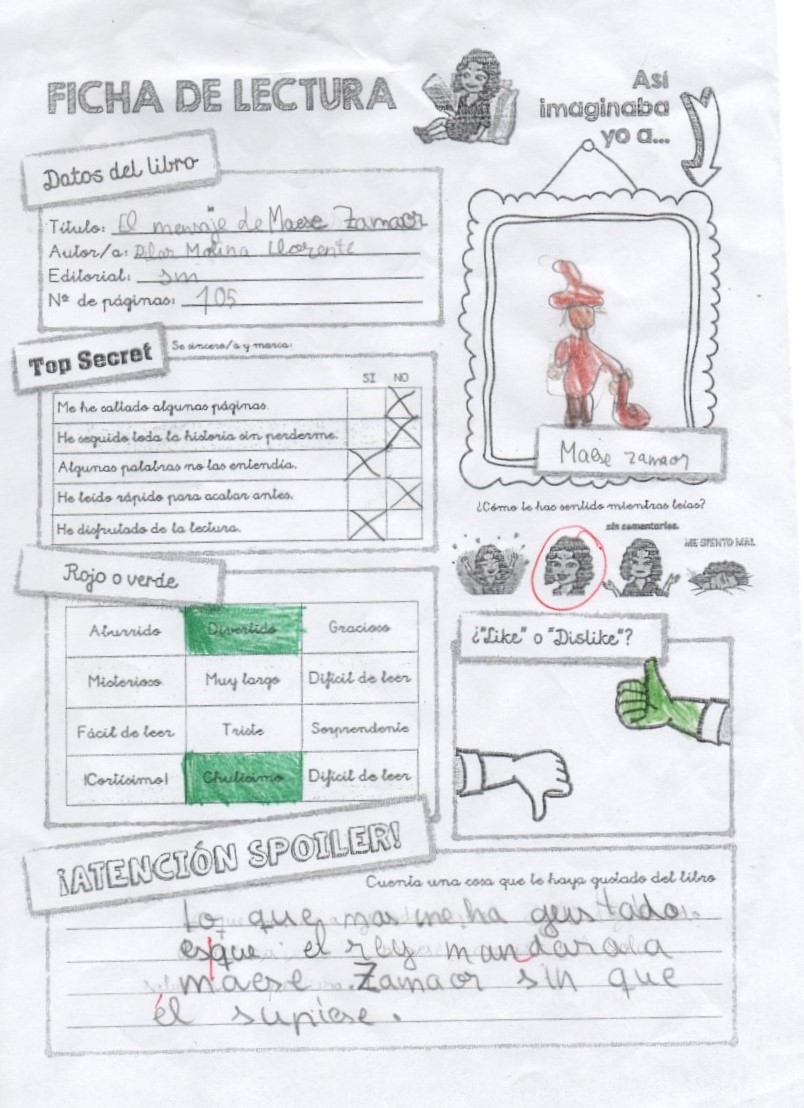 FICHA DE LECTURA
Así
imaginaba
yo a...
Datos del libro
Título: El mensaje de Maese Zamaor
Autor/a: Pilar Molina Llorente
Editorial: sm
Nº de páginas: 105
Top Secret
Se sincero/a y marca:
SI NO
Me he saltado algunas páginas. X
He seguido toda la historia sin perderme. X
Algunas palabras no las entendía. X
He leído rápido para acabar antes. X
He disfrutado de la lectura. X
Maese zamaor
¿Cómo te has sentido mientras leías?
sin comentarios.
ME SIENTO MAL
Rojo o verde
Aburrido Divertido Gracioso
Misterioso Muy largo Difícil de leer
Fácil de leer Triste Sorprendente
¡Cortísimo! Chulísimo Difícil de leer
¿"Like" o "Dislike"?
¡ATENCIÓN SPOILER!
Cuenta una cosa que te haya gustado del libro
Lo que mas me ha gustado
esque el rey mandara a
maese Zamaor sin que
él supiese.